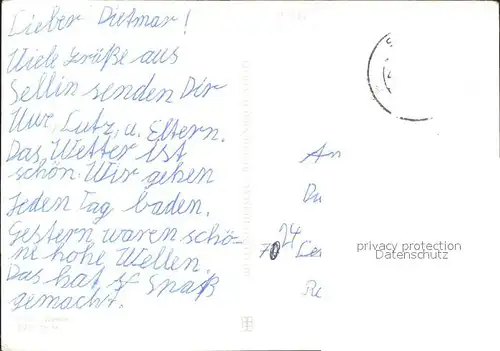 Lieber Dietmar!
Viele Grüße aus
Sellin senden Dir
Uwe, Lutz, u. Eltern.
Das Wetter ist
schön. Wir gehen
jeden Tag baden.
Gestern waren schö-
ne hohe Wellen.
Das hat Spaß
gemacht.
An
7024
privacy protection
Datenschutz